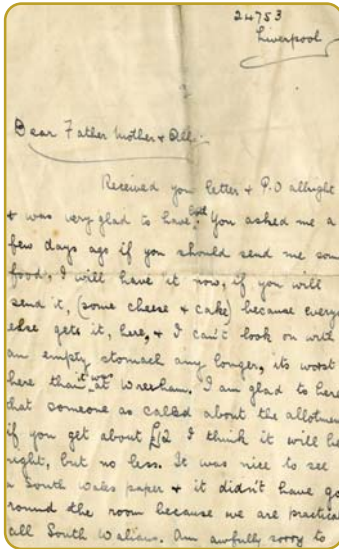 24753
Liverpool
Dear Father Mother & All :-
Received you letter & P.O allright
& was very glad to have both. You asked me a
few days ago if you should send me som
food, I will have it now, if you will
send it, (some cheese & cake) because every
else gets it, here, & I can't look on with
an empty stomach any longer, its worst
here than it was at Wrexham. I am glad to here
that someone as called about the allotmen
if you get about £12 I think it will be
right, but no less. It was nice to see
a South Wales paper & it didn't have go
round the room because we are practical
all South Walians. Am awfully sorry to